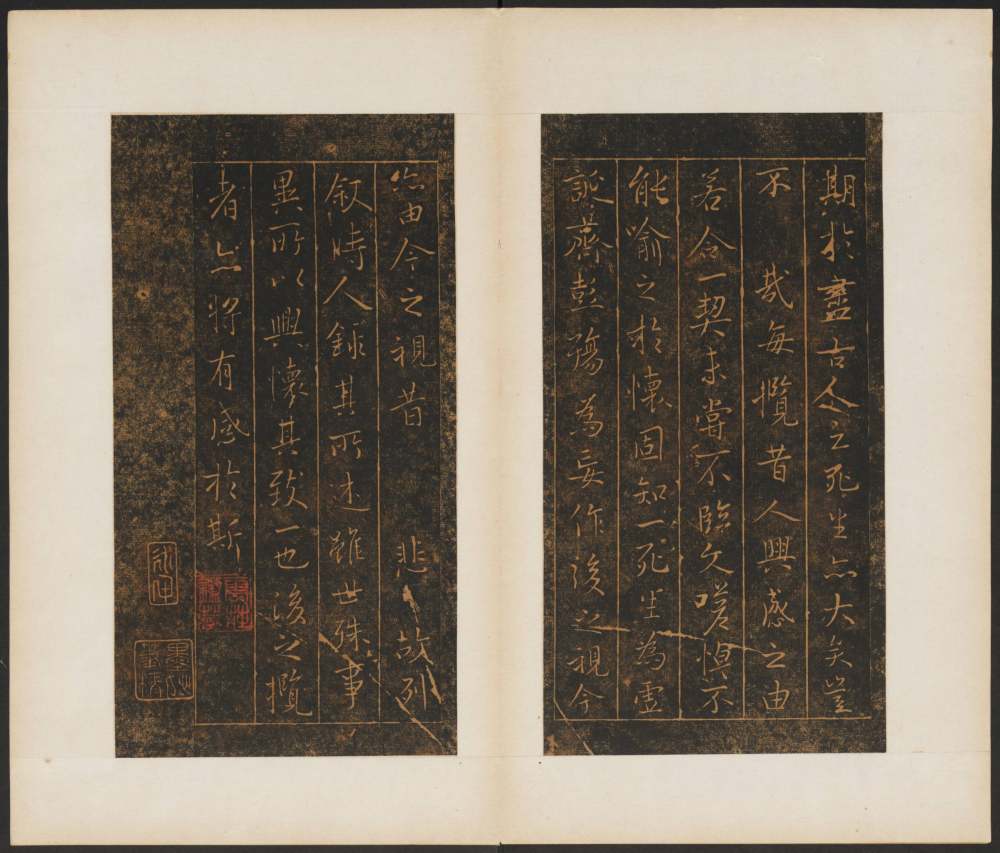 期於盡古人云死生亦大矣豈
不哉每攬昔人興感之由
若合一契未嘗不臨文嗟悼不
能喻之於懷固知一死生為虛
誕齊彭殤為妄作後之視今
亦由今之視昔悲故列
敘時人錄其所述雖世殊事
異所以興懷其致一也後之攬
者亦將有感於斯
永仲
墨妙筆精